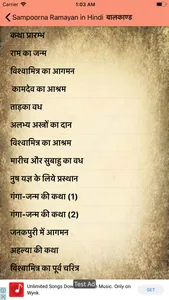 App Store
1:03 AM
Sampoorna Ramayan in Hindi बालकाण्ड
कथा प्रारम्भ
राम का जन्म
विश्वामित्र का आगमन
कामदेव का आश्रम
ताड़का वध
अलभ्य अस्त्रों का दान
विश्वामित्र का आश्रम
मारीच और सुबाहु का वध
नुष यज्ञ के लिये प्रस्थान
गंगा-जन्म की कथा (1)
गंगा-जन्म की कथा (2)
जनकपुरी में आगमन
अहल्या की कथा
विश्वामित्र का पूर्व चरित्र
Test Ad
Unlimited Songs Dow
Music. Only on Wynk.
GET